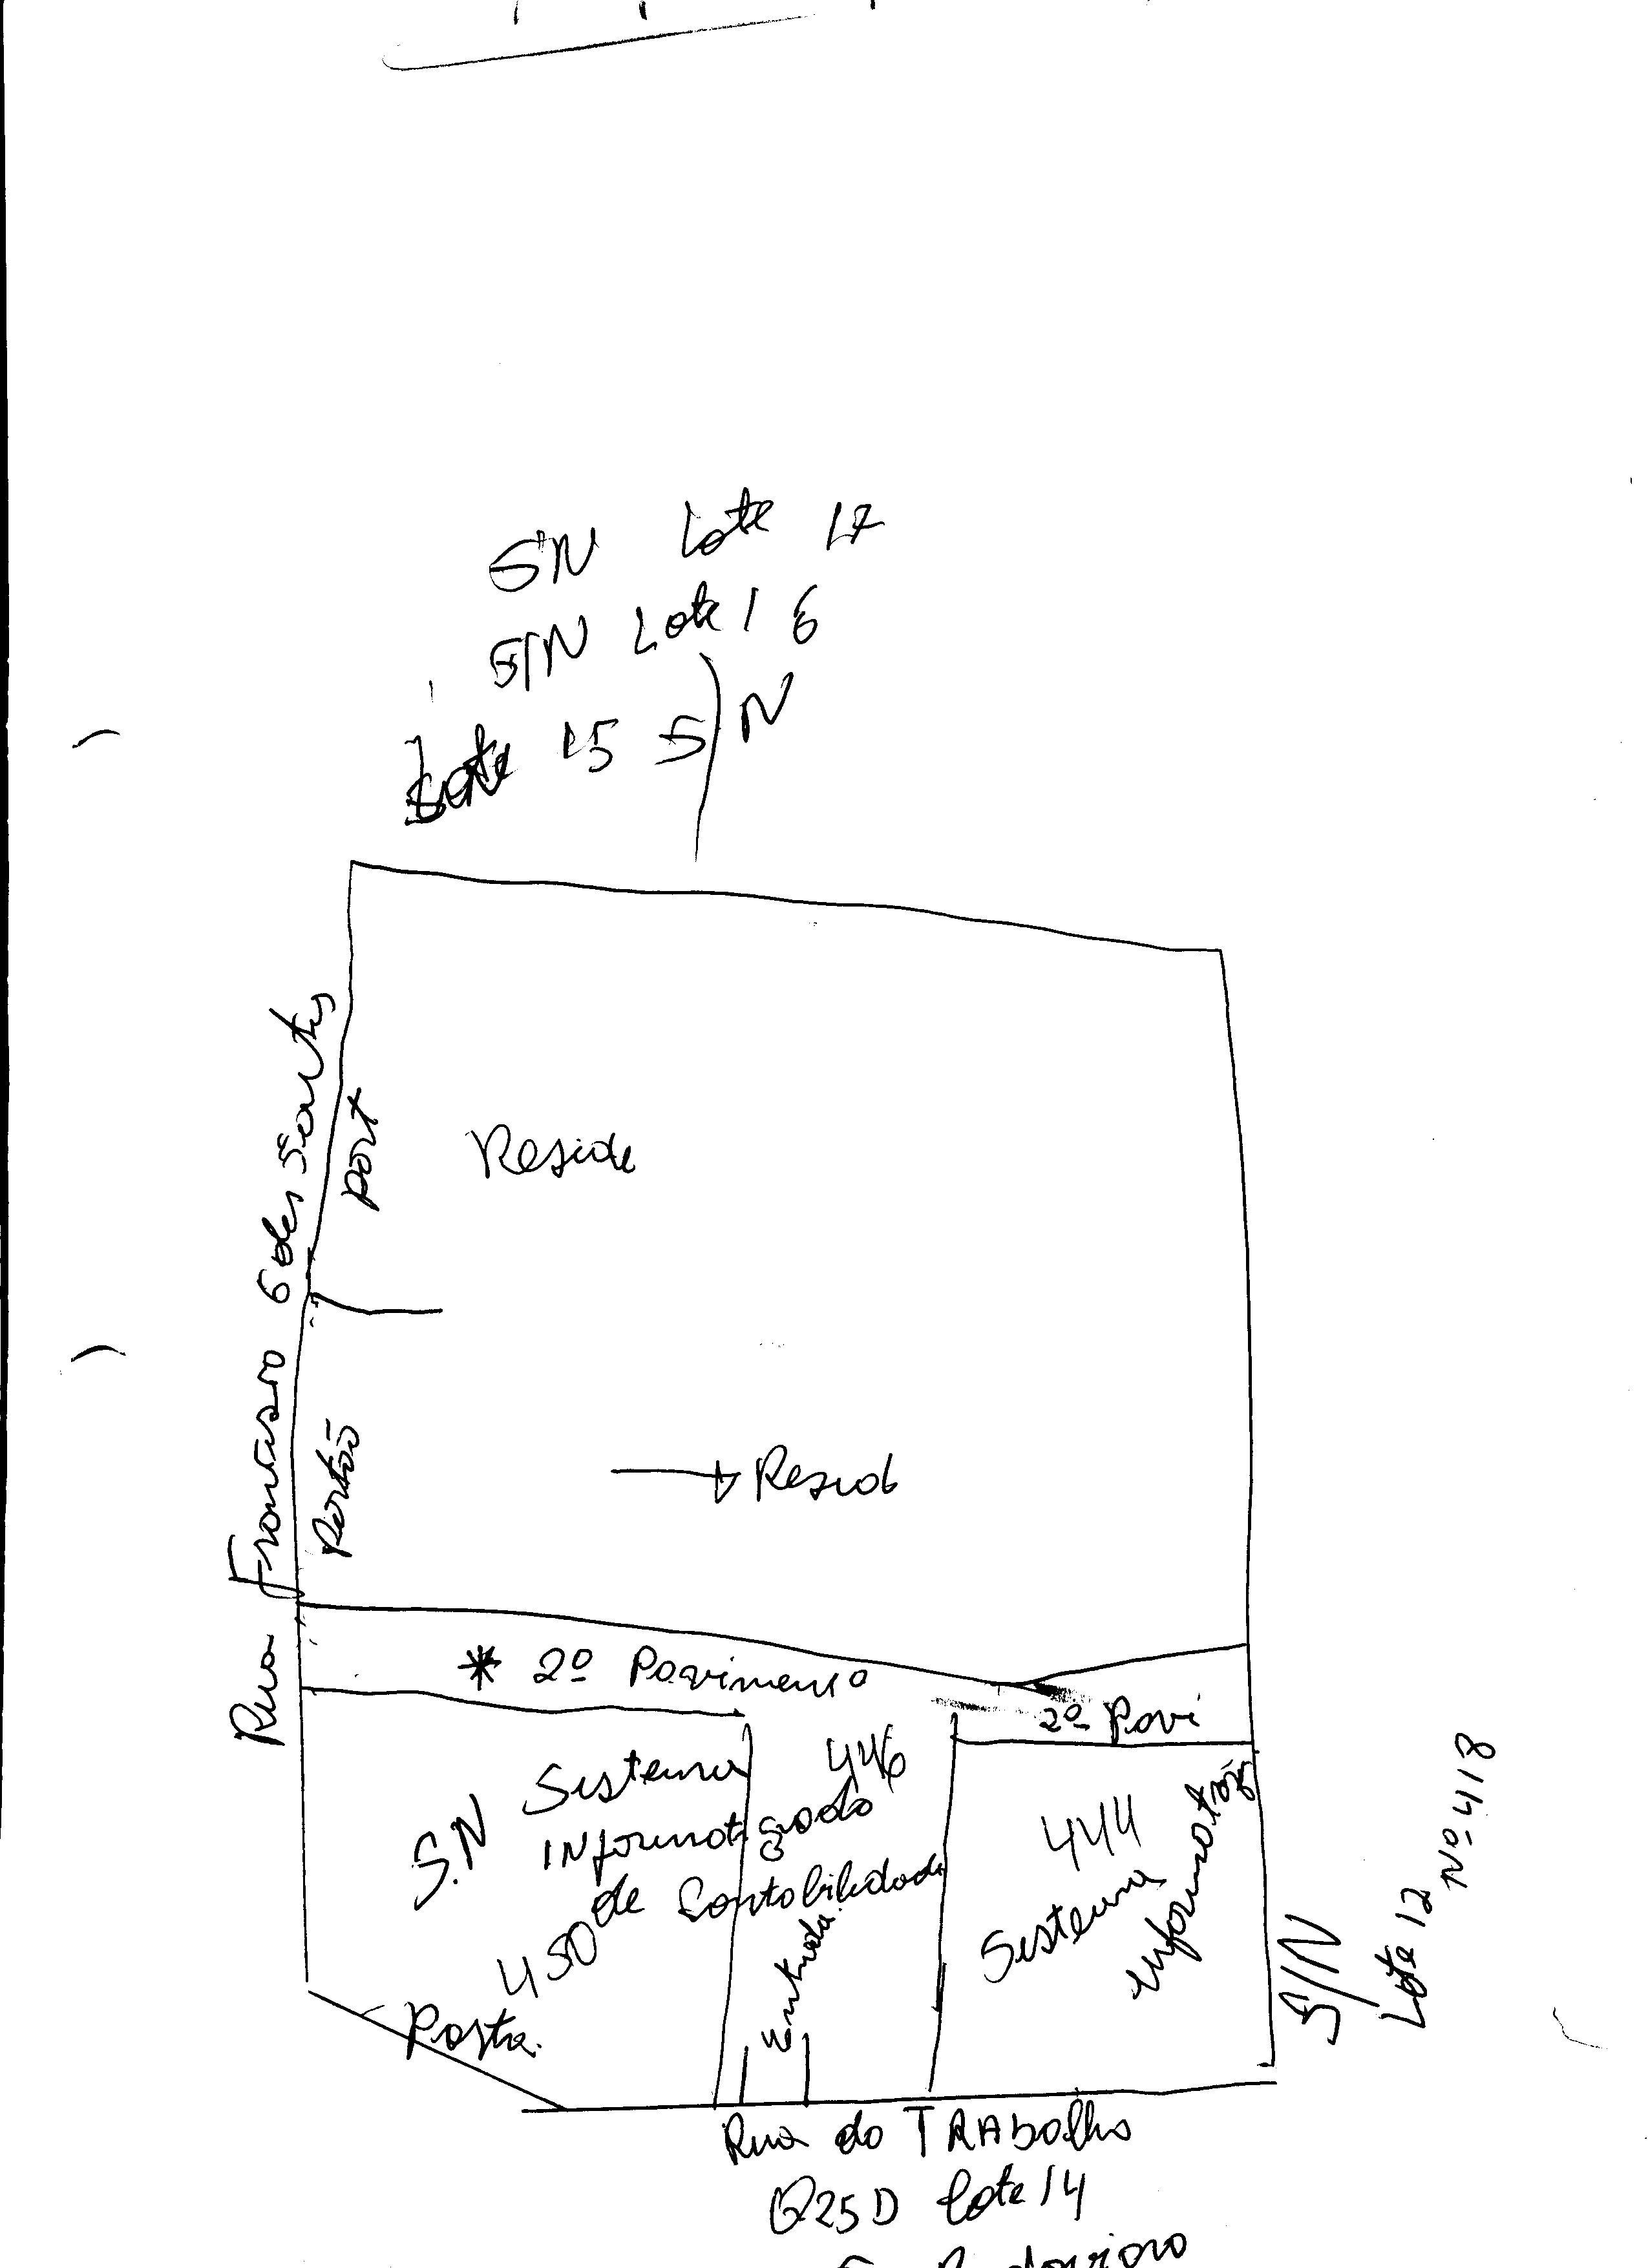 SN Lote 17
S/N Lote 16
Lote 15 S/N
Rua Francisco G des Santos
Port
Reside
Portão
Resid
* 2º Pavimento
2º Pavi
S.N Sistema
Informatizado
de Contabilidade
446
450
Porta.
Entrada.
444
Sistema
Informatiz
S/N
Lote 12 Nº 418
Rua do TRAbalho
Q25D Lote 14